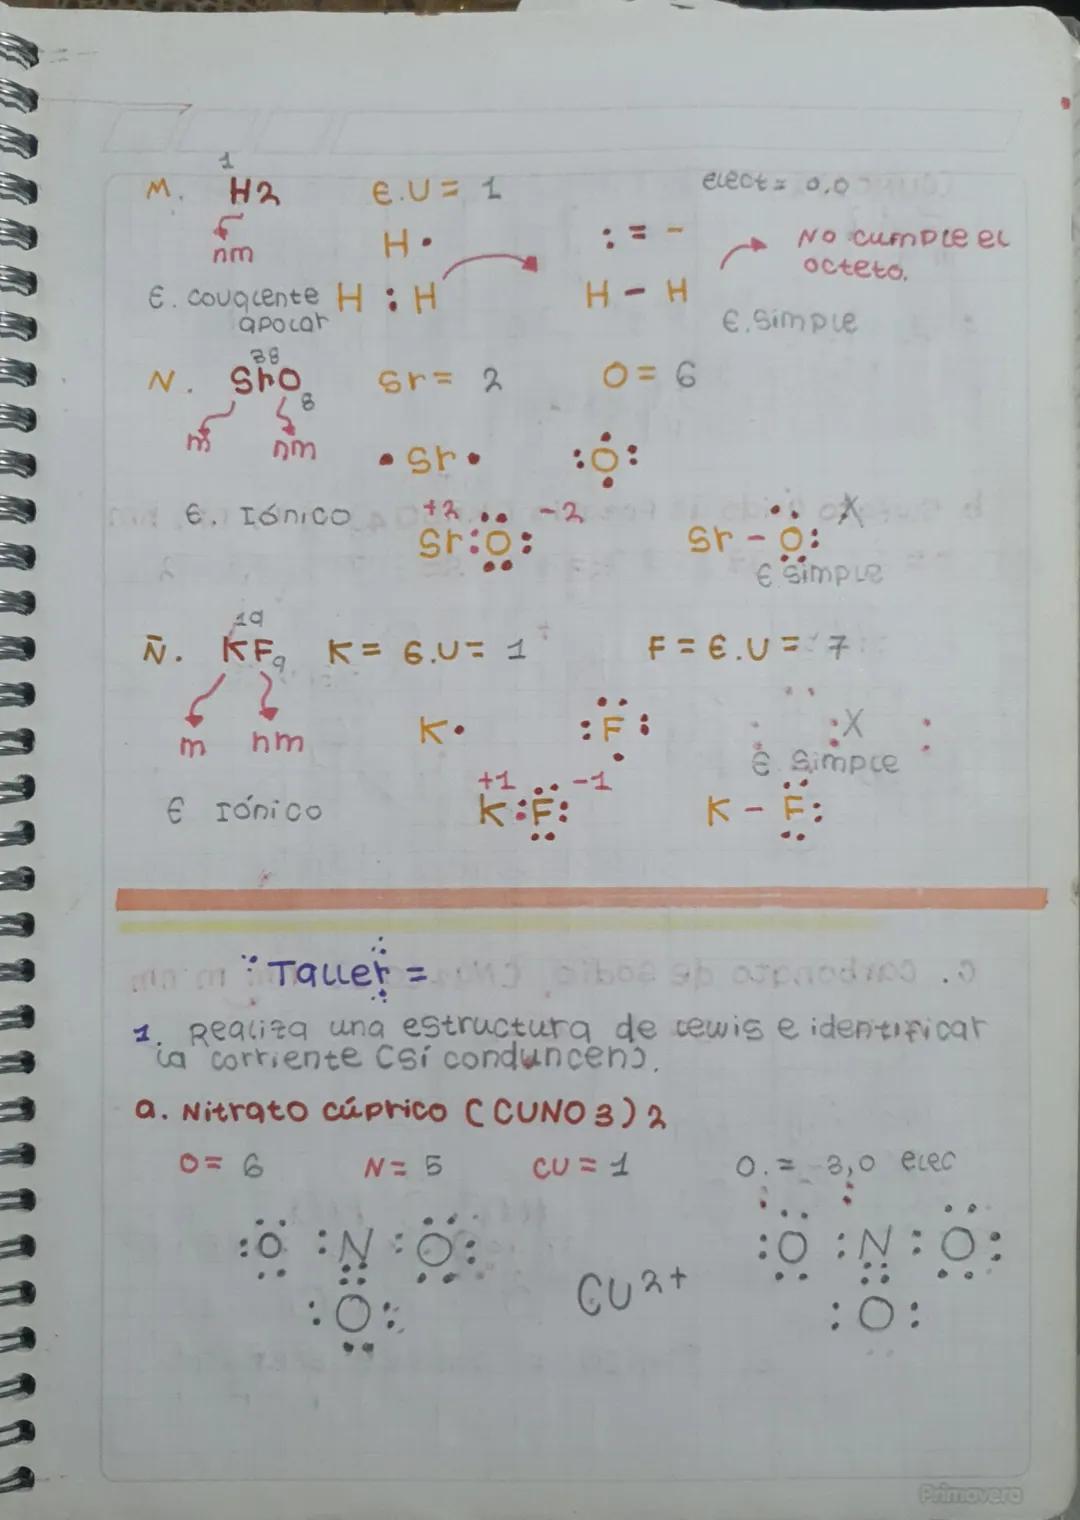 1
M. H2 E.U = 1 elect = 0,0
nm H· : = - No cumple el octeto.
E. covalente apolar H : H H - H E. Simple
38
N. SrO Sr = 2 O = 6
8
m nm
· Sr · :O:
E. Iónico +2 -2 X
Sr:O: Sr - O:
E simple
19
Ñ. KF K = E.U = 1 F = E.U = 7
9
m nm K· :F: :X
E Simple
+1 -1
E Iónico K:F: K - F:
Taller =
1. Realiza una estructura de lewis e identificar
la corriente (si conduncen).
a. Nitrato cúprico (CUNO3)2
O = 6 N = 5 CU = 1 O. = -3,0 elec
:O :N:O: :O :N:O:
CU2+
:O: :O:
Primavera